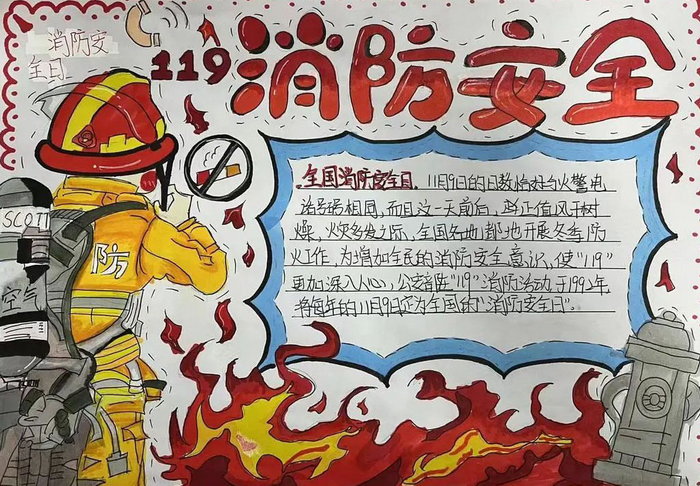 消防安
全日
119消防安全
全国消防安全日，11月9日的日数恰好与火警电
话号码相同，而且这一天前后，正值风干树
燥，火灾多发之际，全国各地都地开展冬季防
火工作，为增加全民的消防安全意识，使"119"
更加深入人心，公安部在"119"消防活动于1992年
将每年的11月9日定为全国的"消防安全日"。
SCOTT
防
空气